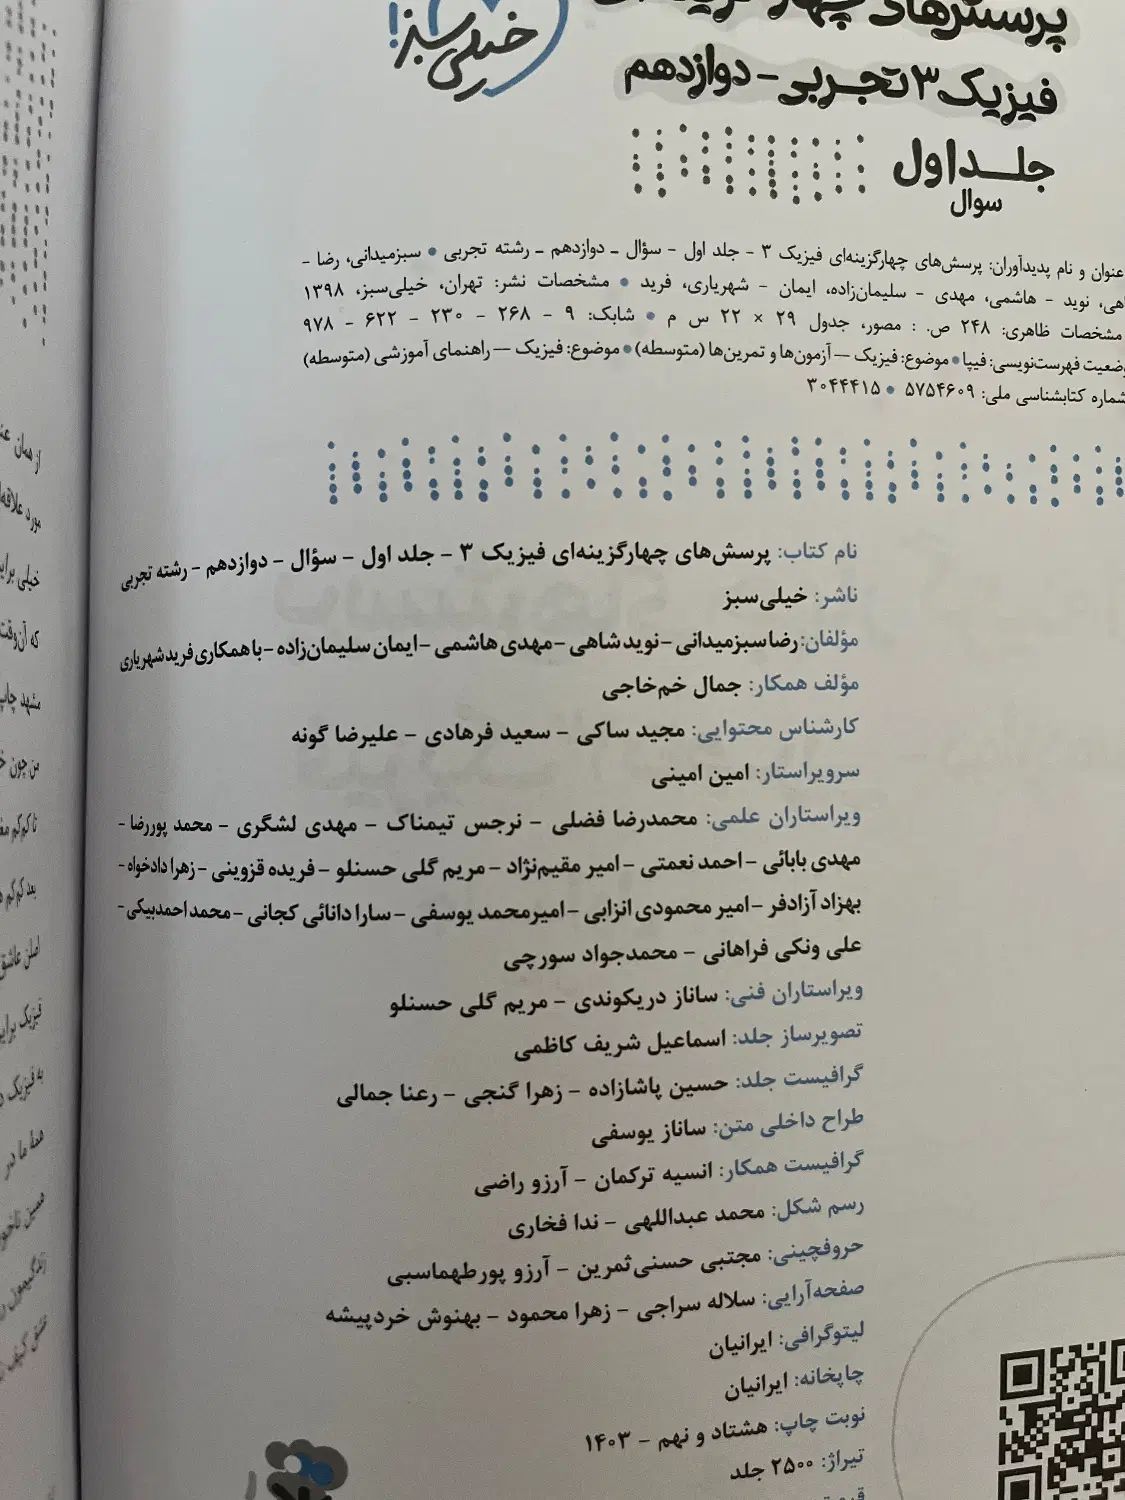 خیلی سبز!
فیزیک ۳ تجربی - دوازدهم
جلد اول
سوال
عنوان و نام پدیدآوران: پرسش‌های چهارگزینه‌ای فیزیک ۳ - جلد اول - سؤال - دوازدهم - رشته تجربی • سبزمیدانی، رضا -
نوید - هاشمی، مهدی - سلیمان‌زاده، ایمان - شهریاری، فرید • مشخصات نشر: تهران، خیلی‌سبز، ۱۳۹۸
مشخصات ظاهری: ۲۴۸ ص. : مصور، جدول ۲۹ × ۲۲ س م • شابک: ۹ - ۲۶۸ - ۲۳۰ - ۶۲۲ - ۹۷۸
وضعیت فهرست‌نویسی: فیپا • موضوع: فیزیک — آزمون‌ها و تمرین‌ها (متوسطه) • موضوع: فیزیک — راهنمای آموزشی (متوسطه)
شماره کتابشناسی ملی: ۵۷۵۴۶۰۹ • ۳۰۴۴۴۱۵
نام کتاب: پرسش‌های چهارگزینه‌ای فیزیک ۳ - جلد اول - سؤال - دوازدهم - رشته تجربی
ناشر: خیلی‌سبز
مؤلفان: رضا سبزمیدانی - نوید شاهی - مهدی هاشمی - ایمان سلیمان‌زاده - با همکاری فرید شهریاری
مؤلف همکار: جمال خم‌خاجی
کارشناس محتوایی: مجید ساکی - سعید فرهادی - علیرضا گونه
سرویراستار: امین امینی
ویراستاران علمی: محمدرضا فضلی - نرجس تیمناک - مهدی لشگری - محمد پوررضا -
مهدی بابائی - احمد نعمتی - امیر مقیم‌نژاد - مریم گلی حسنلو - فریده قزوینی - زهرا دادخواه -
بهزاد آزادفر - امیر محمودی انزابی - امیرمحمد یوسفی - سارا دانائی کجانی - محمد احمدبیکی -
علی ونکی فراهانی - محمدجواد سورچی
ویراستاران فنی: ساناز دریکوندی - مریم گلی حسنلو
تصویرساز جلد: اسماعیل شریف کاظمی
گرافیست جلد: حسین پاشازاده - زهرا گنجی - رعنا جمالی
طراح داخلی متن: ساناز یوسفی
گرافیست همکار: انسیه ترکمان - آرزو راضی
رسم شکل: محمد عبداللهی - ندا فخاری
حروفچینی: مجتبی حسنی‌ثمرین - آرزو پورطهماسبی
صفحه‌آرایی: سلاله سراجی - زهرا محمود - بهنوش خردپیشه
لیتوگرافی: ایرانیان
چاپخانه: ایرانیان
نوبت چاپ: هشتاد و نهم - ۱۴۰۳
تیراژ: ۲۵۰۰ جلد